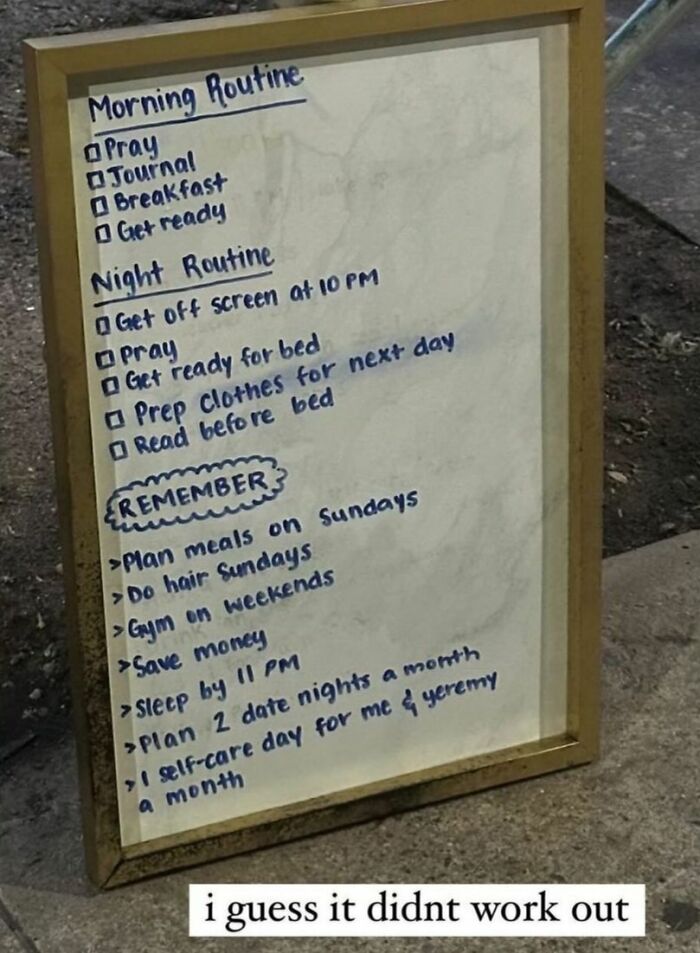 Morning Routine
Pray
Journal
Breakfast
Get ready
Night Routine
Get off screen at 10 PM
Pray
Get ready for bed
Prep clothes for next day
Read before bed
REMEMBER
>Plan meals on Sundays
>Do hair Sundays
>Gym on weekends
>Save money
>Sleep by 11 PM
>Plan 2 date nights a month
>1 self-care day for me & yeremy
a month
i guess it didnt work out